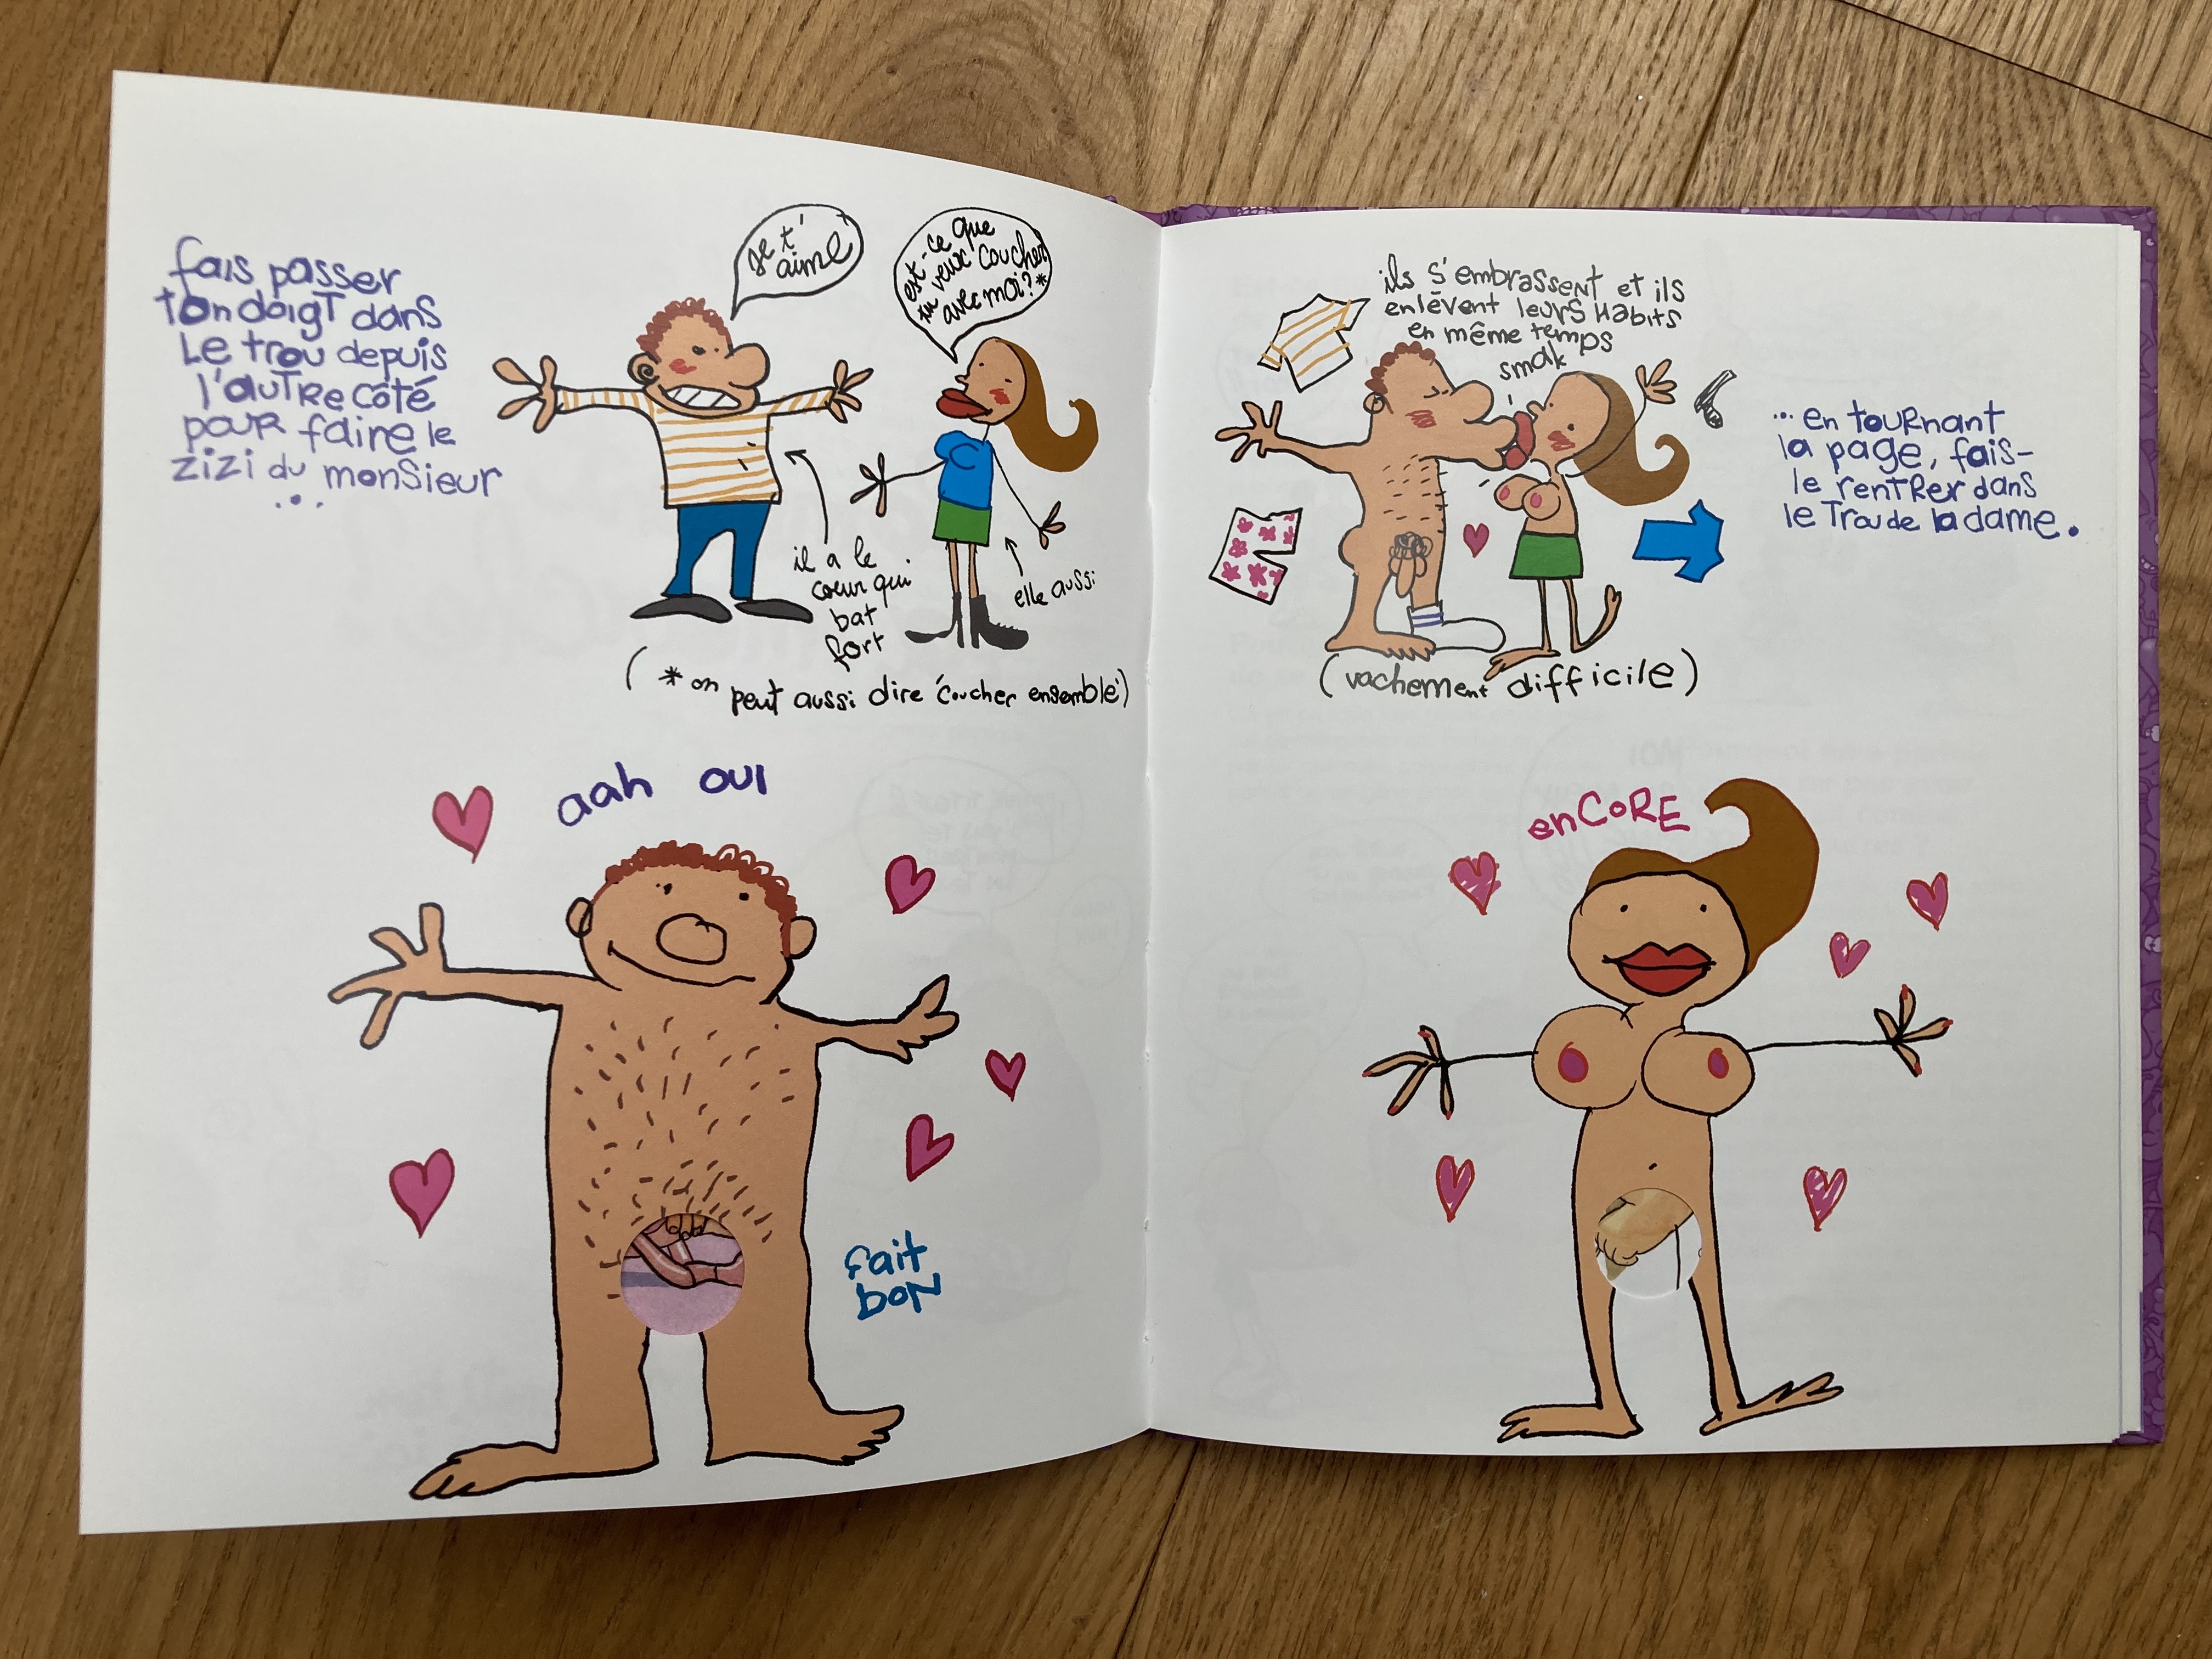 fais passer
ton doigt dans
le trou depuis
l'autre côté
pour faire le
zizi du monsieur
...
je t'
aime
est-ce que
tu veux coucher
avec moi?*
il a le
cœur qui
bat
fort
elle aussi
(*on peut aussi dire 'coucher ensemble')
aah oui
fait
bon
ils s'embrassent et ils
enlèvent leurs habits
en même temps
smak
(vachement difficile)
...en tournant
la page, fais-
le rentrer dans
le trou de la dame.
encore